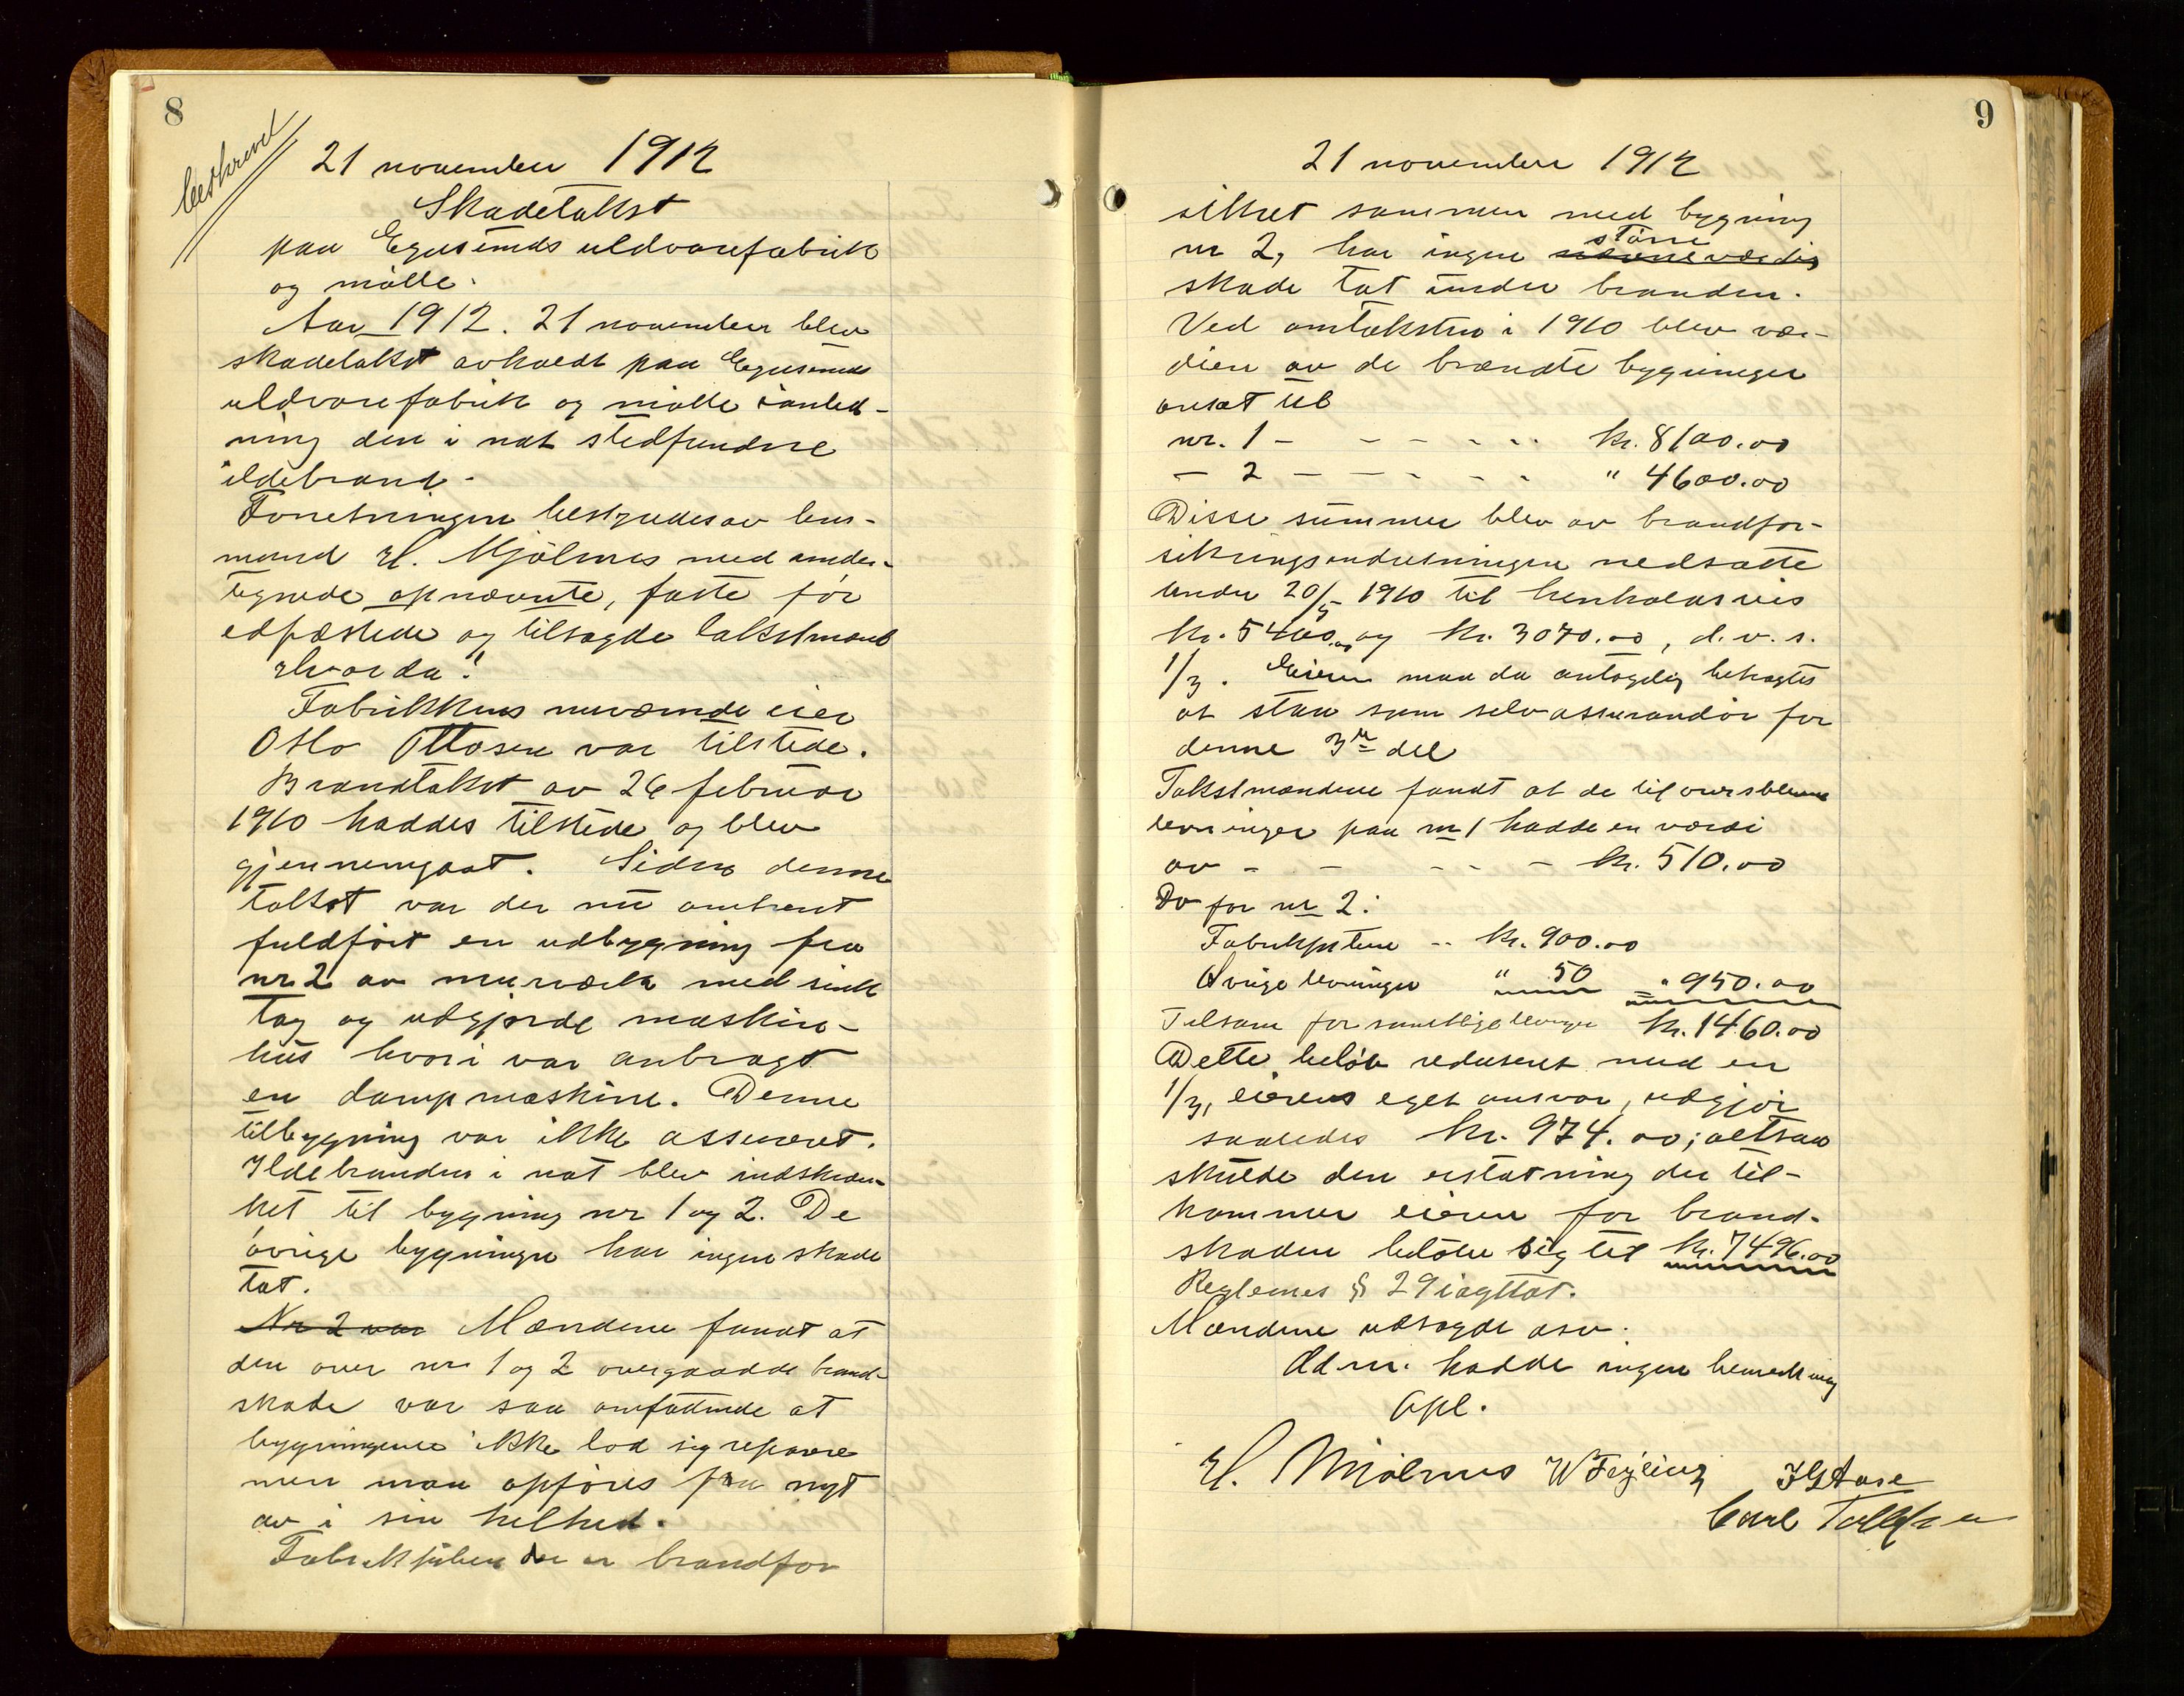 8
beskrevet
21 november 1912
Skadetakst
paa Egersunds uldvarefabrik
og mølle.
Aar 1912. 21 november blev
skadetakst avholdt paa Egersunds
uldvarefabrik og mølle i anled-
ning den i nat stedfundne
ildebrand.
Forretningen bestyredes av lens-
mand H. Mjølsnes med under-
tegnede opnævnte, faste før
edfæstede og tilsagde takstmænd
Hvorda:
Fabrikkens nuværende eier
Oslo Ottosen var tilstede.
Brandtakst av 26 februar
1910 haddes tilstede og blev
gjennemgaat. Siden denne
takst var der nu omtrent
fuldført en udbygning fra
nr. 2 av murværk med sink
tag og udgjorde maskin-
hus hvori var anbragt
en dampmaskine. Denne
tilbygning var ikke assureret.
Ildebranden i nat blev indskræn-
ket til bygning nr 1 og 2. De
øvrige bygninger har ingen skade
tat.
Nr 2 var Mændene fandt at
den over nr 1 og 2 overgaadde brand-
skade var saa omfattende at
bygningene ikke lod sig reparere
men maa opføres fra nyt
av i sin helhed.
Fabrikpiben der er brandfor
9
21 november 1912
sikret sammen med bygning
større
nr 2, har ingen nævneværdig
skade tat under branden.
Ved omtaksten i 1910 blev vær-
dien av de brændte bygninger
ansat til
nr. 1 - - - - - - kr. 8100.00
- 2 - - - - - - " 4600.00
Disse summer blev av brandfor-
sikringsindretningen nedsatte
under 20/5 1910 til henholdsvis
kr. 5400.00 og kr. 3070.00, d.v.s.
1/3. Eieren maa da antagelig betragtes
at staa som selvassurandør for
denne 3die del
Takstmændene fandt at de tiloversblevne
levninger paa nr 1 hadde en værdi
av - - - - - kr. 510.00
Do for nr 2:
Fabrikpiben -- kr. 900.00
Øvrige levninger " 50 = " 950.00
Tilsam for samtlige levninger kr. 1460.00
Dette beløb reduseret med en
1/3, eierens eget ansvar, udgjør
saaledes kr. 974.00; altsaa
skulde den erstatning der til-
kommer eieren for brand-
skaden beløbe sig til kr. 7496.00
Reglernes § 29 iagttat.
Mændene udsagde osv.
Adm. hadde ingen bemerkning
Opl.
H. Mjølsnes W Feyling
Carl Tollefsen